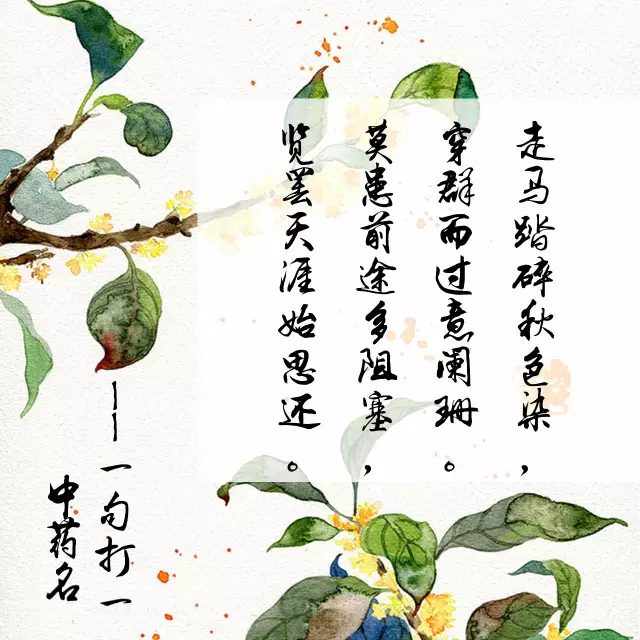 走马踏碎秋色染，
穿群而过意阑珊。
莫患前途多阻塞，
览罢天涯始思还。
——一句打一
中药名